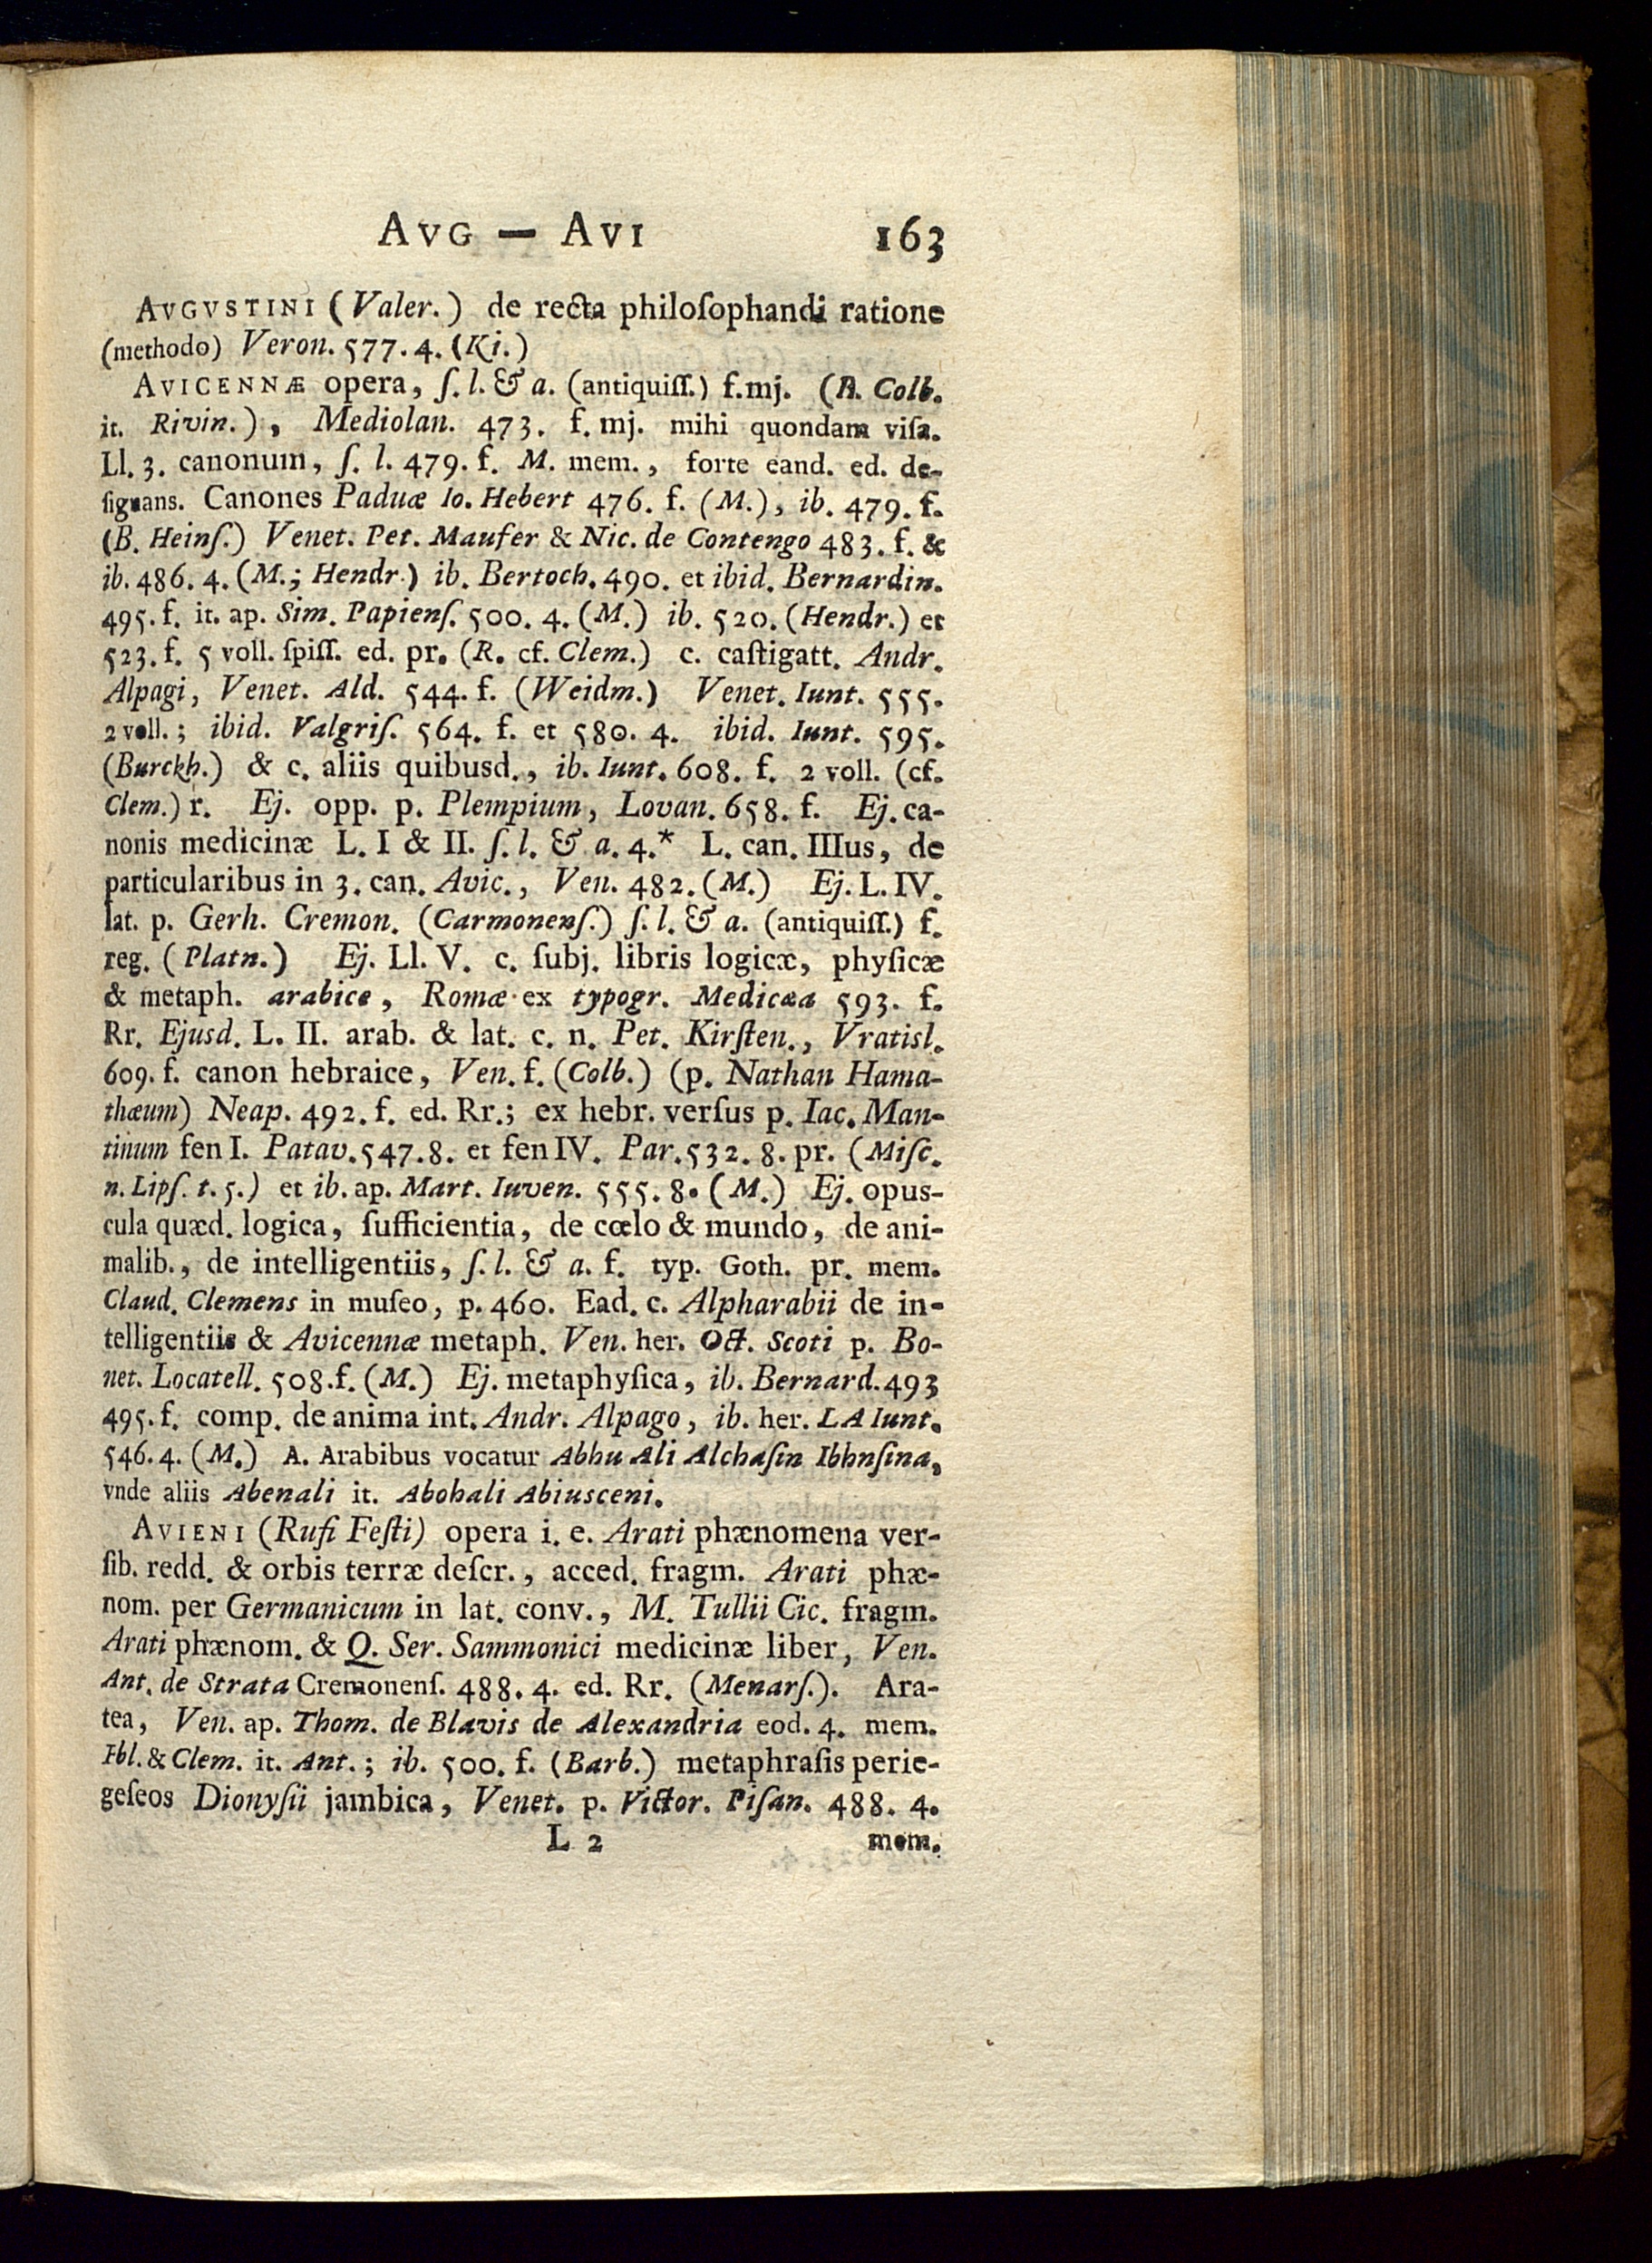 AVG — AVI 163
AVGVSTINI (Valer.) de recta philoſophandi ratione
(methodo) Veron. 577. 4. (Ki.)
AVICENNÆ opera, ſ. l. & a. (antiquiſſ.) f.mj. (B. Colb.
it. Rivin.), Mediolan. 473. f. mj. mihi quondam viſa.
Ll. 3. canonum, ſ. l. 479. f. M. mem., forte eand. ed. de-
ſignans. Canones Paduæ Io. Hebert 476. f. (M.), ib. 479. f.
(B. Heinſ.) Venet. Pet. Maufer & Nic. de Contengo 483. f. &
ib. 486. 4. (M.; Hendr.) ib. Bertoch. 490. et ibid. Bernardin.
495. f. it. ap. Sim. Papienſ. 500. 4. (M.) ib. 520. (Hendr.) et
523. f. 5 voll. ſpiſſ. ed. pr. (R. cf. Clem.) c. caſtigatt. Andr.
Alpagi, Venet. Ald. 544. f. (Weidm.) Venet. Iunt. 555.
2 voll.; ibid. Valgriſ. 564. f. et 580. 4. ibid. Iunt. 595.
(Burckh.) & c. aliis quibusd., ib. Iunt. 608. f. 2 voll. (cf.
Clem.) r. Ej. opp. p. Plempium, Lovan. 658. f. Ej. ca-
nonis medicinæ L. I & II. ſ. l. & a. 4.* L. can. IIIus, de
particularibus in 3. can. Avic., Ven. 482. (M.) Ej. L. IV.
lat. p. Gerh. Cremon. (Carmonenſ.) ſ. l. & a. (antiquiſſ.) f.
reg. (Platn.) Ej. Ll. V. c. ſubj. libris logicæ, phyſicæ
& metaph. arabice, Romæ ex typogr. Medicæa 593. f.
Rr. Ejusd. L. II. arab. & lat. c. n. Pet. Kirſten., Vratisl.
609. f. canon hebraice, Ven. f. (Colb.) (p. Nathan Hama-
thæum) Neap. 492. f. ed. Rr.; ex hebr. verſus p. Iac. Man-
tinum fen I. Patav. 547. 8. et fen IV. Par. 532. 8. pr. (Miſc.
n. Lipſ. t. 5.) et ib. ap. Mart. Iuven. 555. 8. (M.) Ej. opus-
cula quæd. logica, ſufficientia, de cœlo & mundo, de ani-
malib., de intelligentiis, ſ. l. & a. f. typ. Goth. pr. mem.
Claud. Clemens in muſeo, p. 460. Ead. c. Alpharabii de in-
telligentiis & Avicennæ metaph. Ven. her. Oct. Scoti p. Bo-
net. Locatell. 508. f. (M.) Ej. metaphyſica, ib. Bernard. 493
495. f. comp. de anima int. Andr. Alpago, ib. her. LA Iunt.
546. 4. (M.) A. Arabibus vocatur Abhu Ali Alchaſin Ibhnſina,
vnde aliis Abenali it. Abohali Abiusceni.
AVIENI (Rufi Feſti) opera i. e. Arati phænomena ver-
ſib. redd. & orbis terræ deſcr., acced. fragm. Arati phæ-
nom. per Germanicum in lat. conv., M. Tullii Cic. fragm.
Arati phænom. & Q. Ser. Sammonici medicinæ liber, Ven.
Ant. de Strata Cremonenſ. 488. 4. ed. Rr. (Menarſ.). Ara-
tea, Ven. ap. Thom. de Blavis de Alexandria eod. 4. mem.
Ibl. & Clem. it. Ant.; ib. 500. f. (Barb.) metaphraſis perie-
geſeos Dionyſii jambica, Venet. p. Victor. Piſan. 488. 4.
L 2 mem.